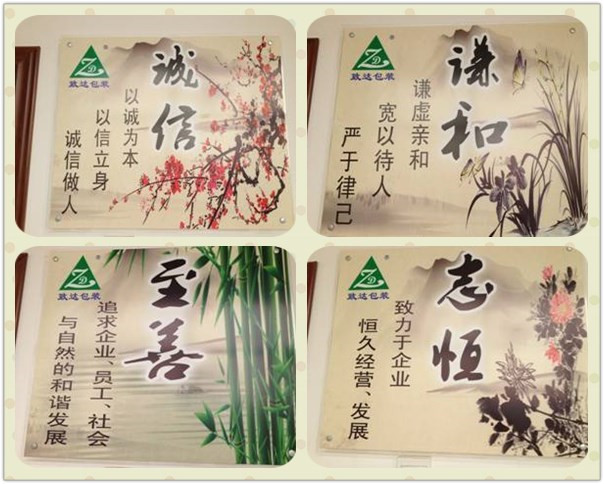 ZD
®
致达包装
诚信
以诚为本
以信立身
诚信做人
ZD
®
致达包装
谦和
谦虚亲和
宽以待人
严于律己
ZD
®
致达包装
至善
追求企业、员工、社会
与自然的和谐发展
ZD
®
致达包装
志恒
致力于企业
恒久经营、发展